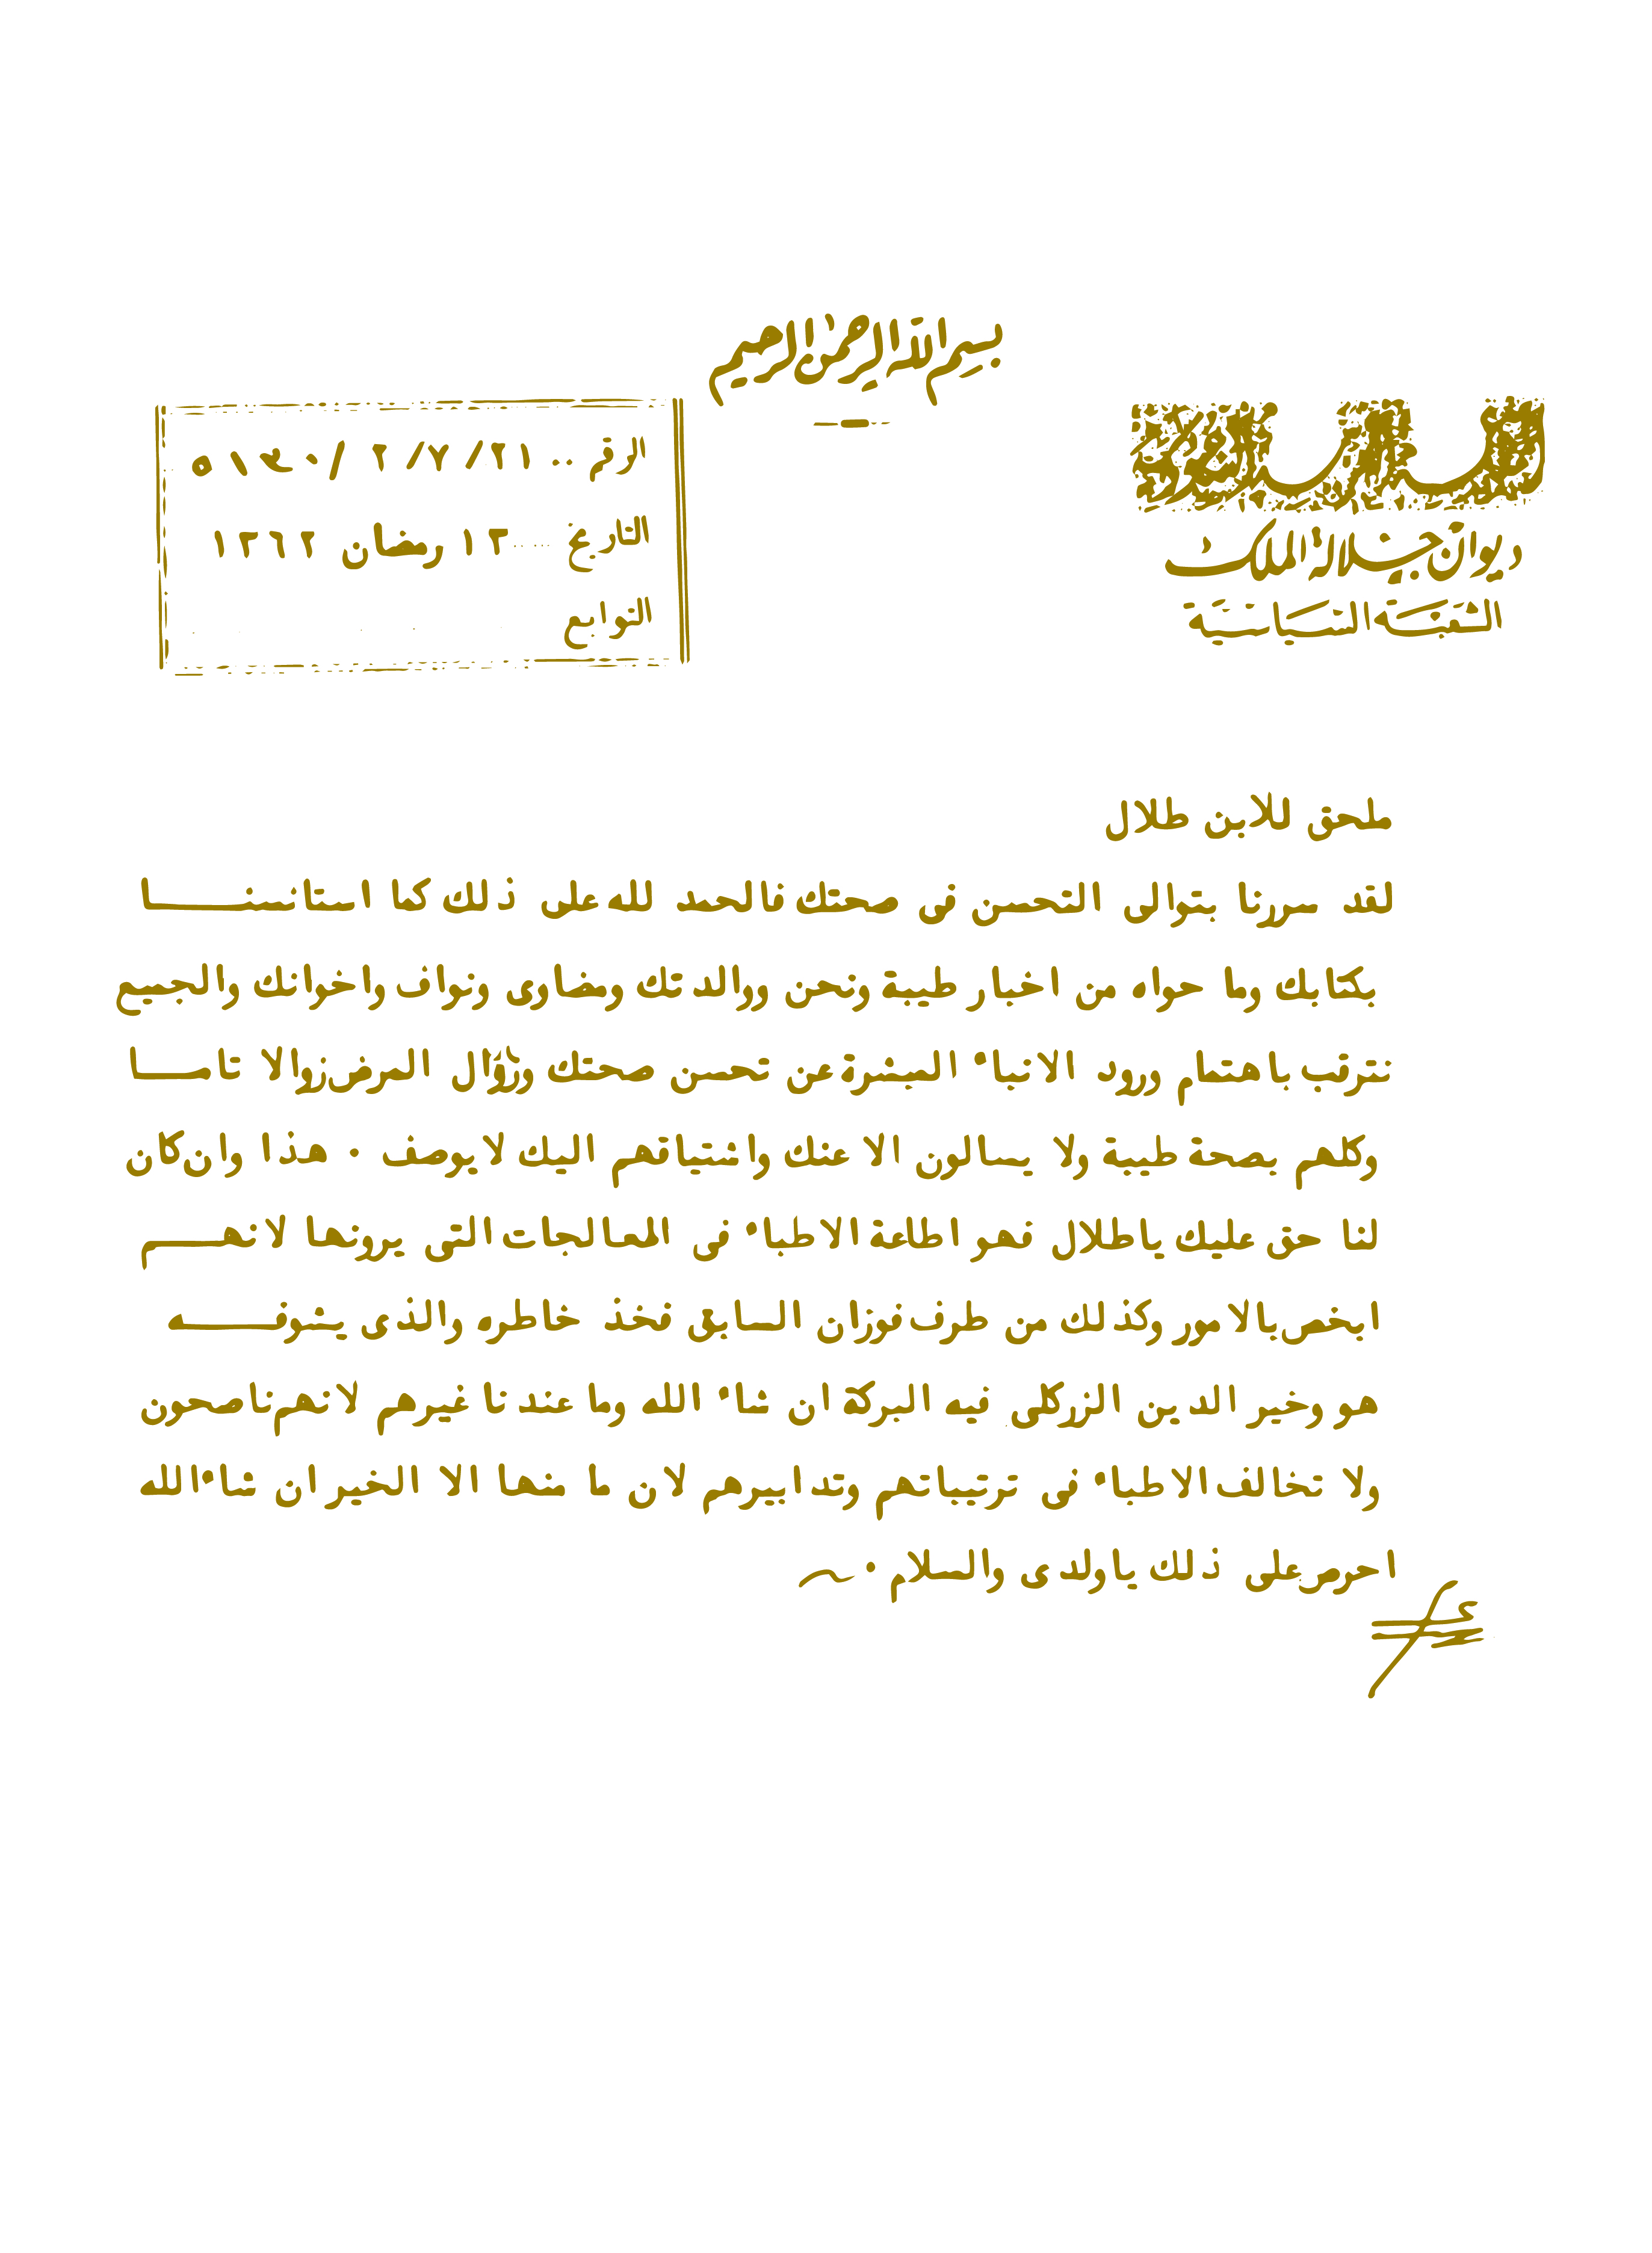 بسم الله الرحمن الرحيم
ديوان جلالة الملك
الشعبة السياسية
الرقم ٢١/٨/٧/٢/٥٨٤٠
التاريخ ١٣ رمضان ١٣٦٢
التوابع
ملحق للابن طلال
لقد سررنا بتوالى التحسن فى صحتك فالحمد لله على ذلك كما استانسنا
بكتابك وما حواه من اخبار طيبة ونحن ووالدتك ومضاوى ونواف واخوانك والجميع
نترقب باهتمام ورود الانباء المبشرة عن تحسن صحتك وزوال المرض زوالا تامـا
وكلهم بصحة طيبة ولا يسالون الا عنك واشتياقهم اليك لا يوصف ٠ هذا وان كان
لنا حق عليك ياطلال فهو اطاعة الاطباء فى المعالجات التى يرونها لانهـم
ابخص بالامور وكذلك من طرف فوزان السابق فخذ خاطره والذى يشوفـه
هو وخير الدين الزركلى فيه البركة ان شاء الله وما عندنا غيرهم لانهم ناصحون
ولا تخالف الاطباء فى ترتيباتهم وتدابيرهم لان ما منها الا الخير ان شاء الله
احرص على ذلك ياولدى والسلام ٠